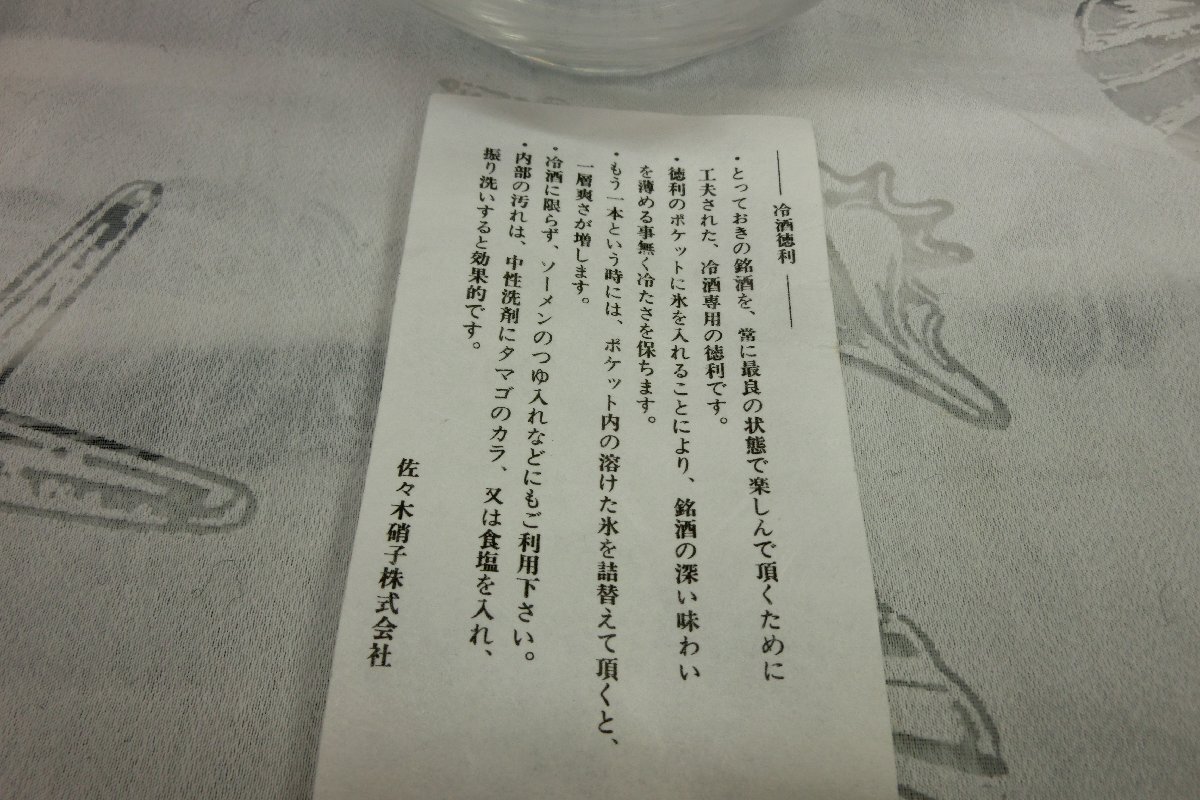 冷酒徳利
・とっておきの銘酒を、常に最良の状態で楽しんで頂くために
工夫された、冷酒専用の徳利です。
・徳利のポケットに氷を入れることにより、銘酒の深い味わい
を薄める事無く冷たさを保ちます。
・もう一本という時には、ポケット内の溶けた氷を詰替えて頂くと、
一層爽さが増します。
・冷酒に限らず、ソーメンのつゆ入れなどにもご利用下さい。
・内部の汚れは、中性洗剤にタマゴのカラ、又は食塩を入れ、
振り洗いすると効果的です。
佐々木硝子株式会社